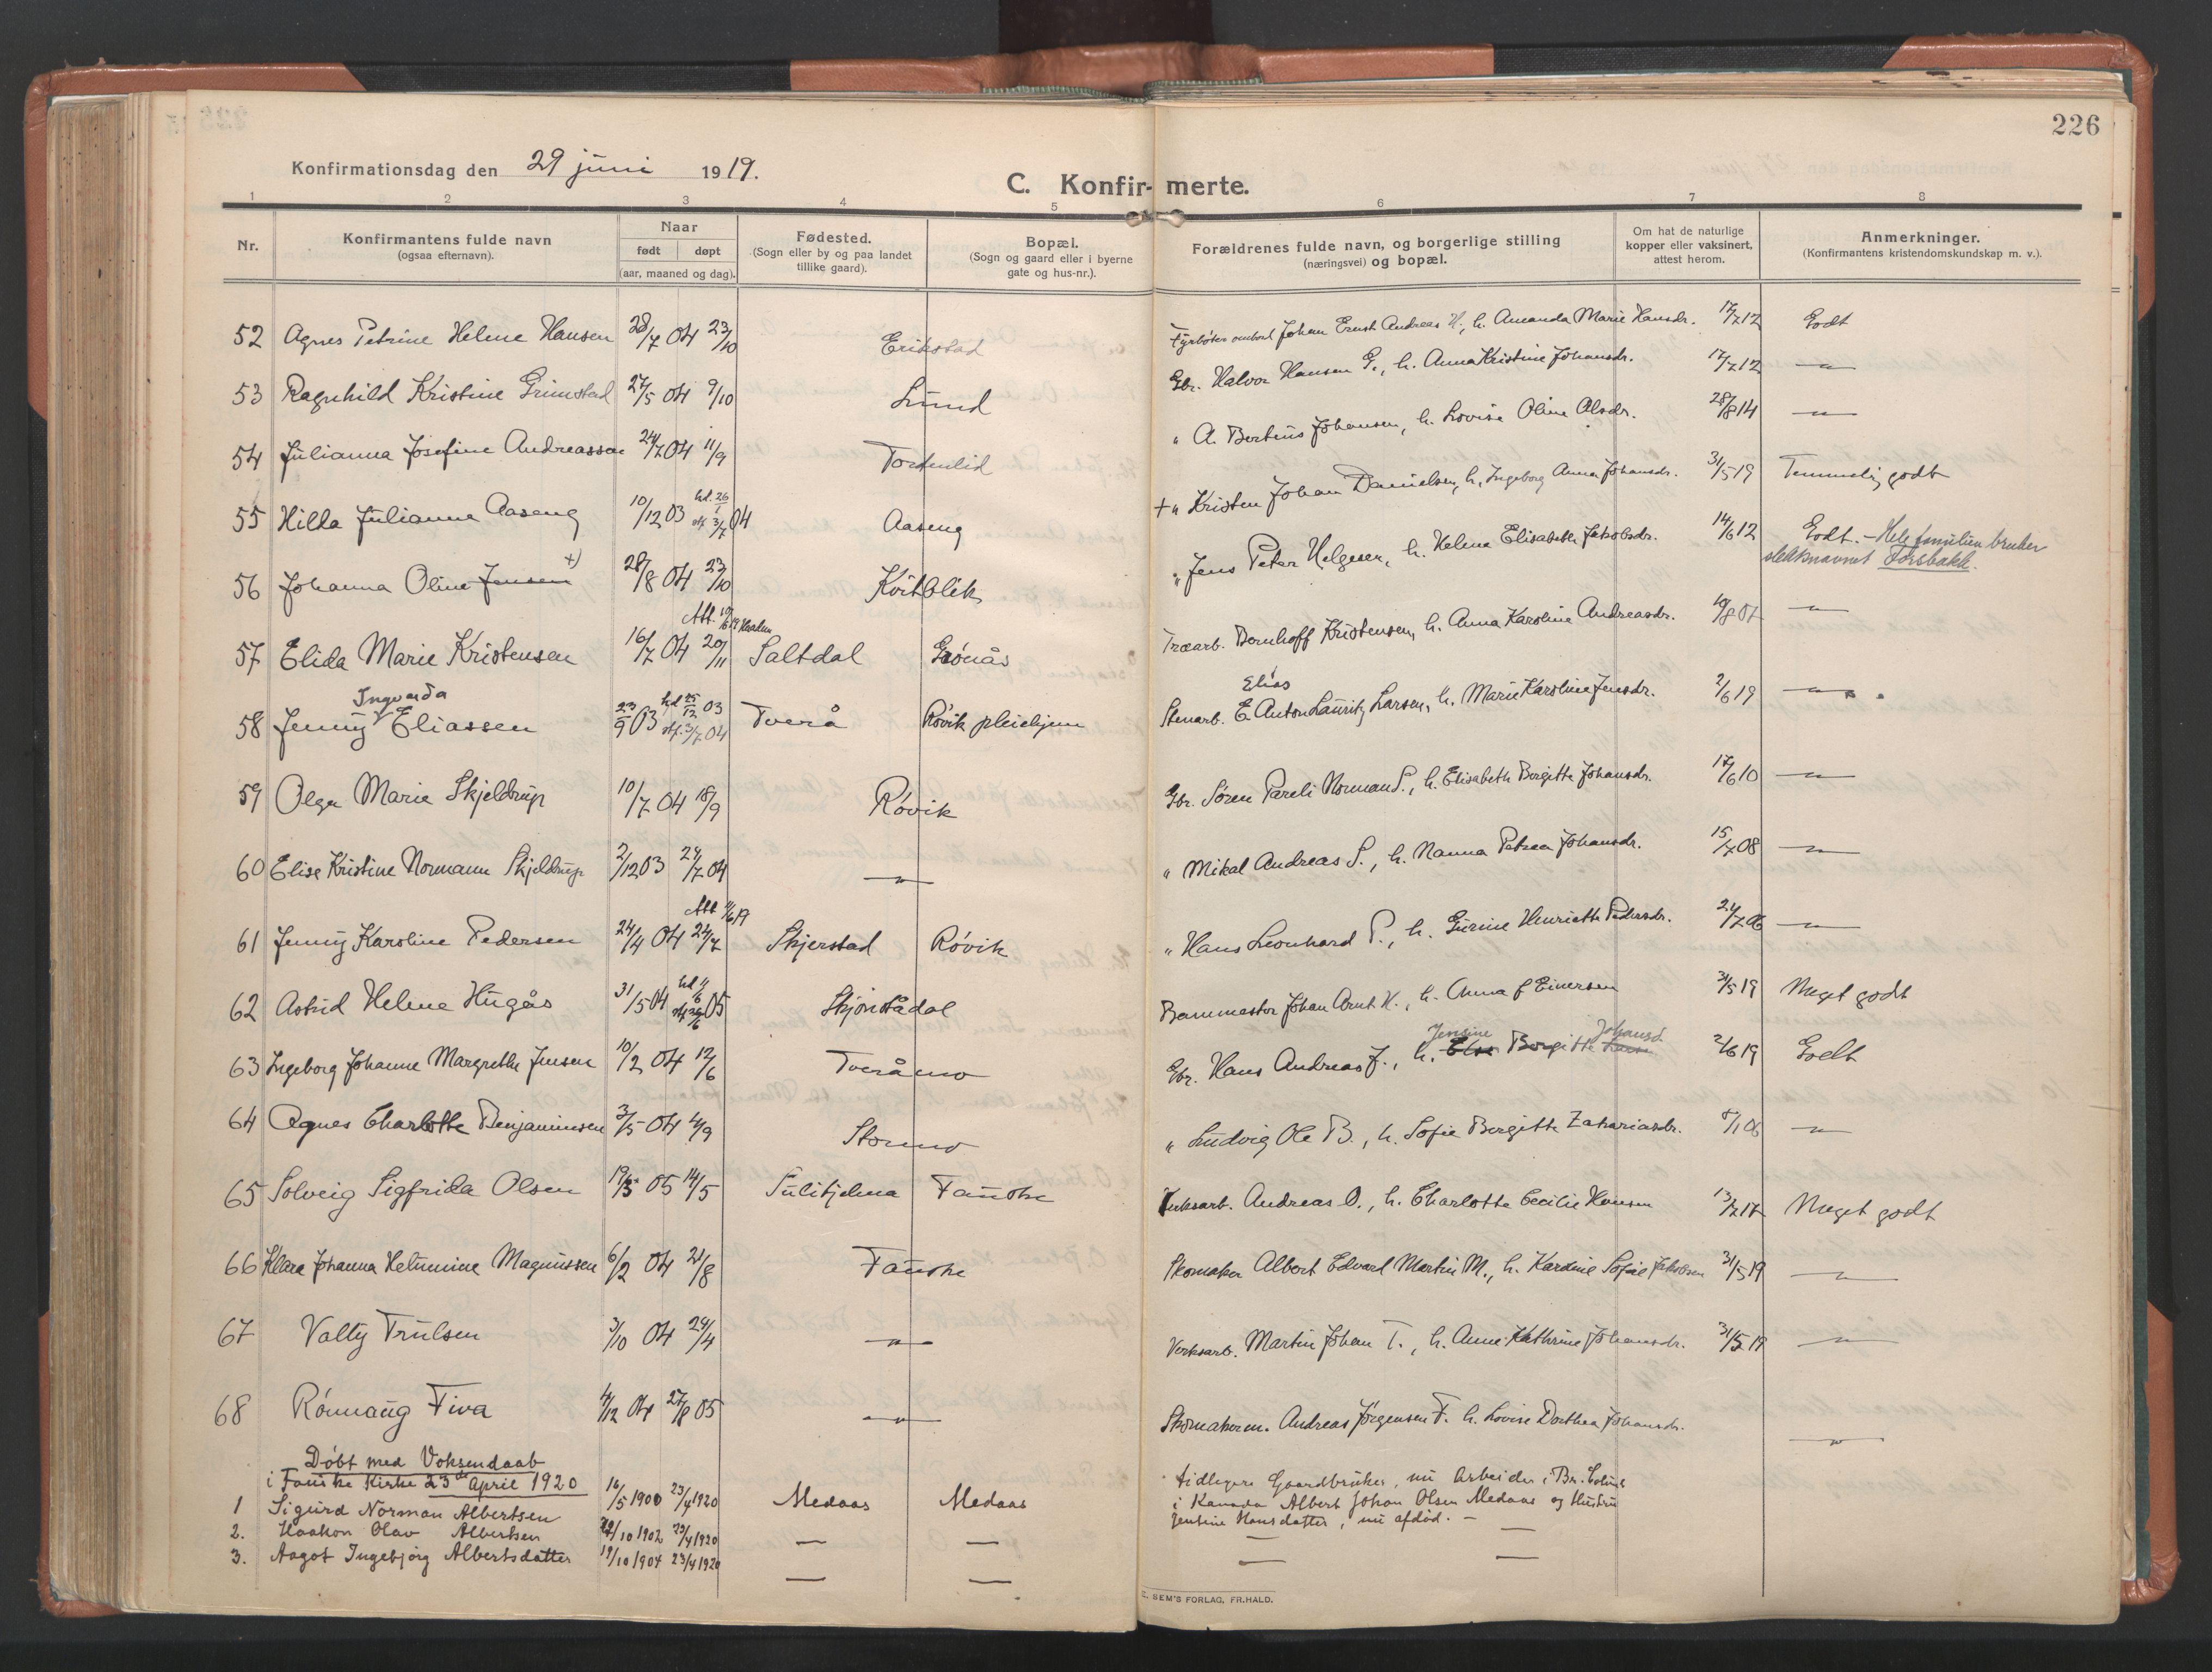 226
Konfirmationsdag den 29 juni 1919.
C. Konfir- merte.
1 2 3 4 5 6 7 8
Nr.
Konfirmantens fulde navn
(ogsaa efternavn).
Naar
født døpt
(aar, maaned og dag).
Fødested.
(Sogn eller by og paa landet
tillike gaard).
Bopæl.
(Sogn og gaard eller i byerne
gate og hus-nr.).
Forældrenes fulde navn, og borgerlige stilling
(næringsvei) og bopæl.
Om hat de naturlige
kopper eller vaksinert,
attest herom.
Anmerkninger.
(Konfirmantens kristendomskundskap m. v.).
52 Agnes Petrine Helene Hansen 28/7 04 23/10 Erikstad Fyrbøter ombord Johan Ernst Andreas H., h. Amanda Marie Hansdr. 17/7 12 Godt
53 Ragnhild Kristine Grimstad 27/5 04 9/10 Lund Gbr. Halvor Hansen G., h. Anna Kristine Johansdr. 17/7 12 —"—
54 Julianna Josefine Andreassen 24/7 04 11/9 Tortenlid " A. Berteus Johansen, h. Lovise Oline Olsdr. 28/8 14 —"—
55 Hilla Julianna Aaseng 10/12 03 hd. 26/1 stf. 3/7 04 Aaseng + " Kristen Johan Danielsen, h. Ingeborg Anna Johansdr. 31/5 19 Temmelig godt
56 Johanna Oline Jensen +) 28/8 04 23/10 Kvitblik " Jens Peter Helgesen, h. Helene Elisabeth Jakobsdr. 14/6 12 Godt. - Hele familien bruker
slektnavnet Forsbakk.
57 Elida Marie Kristensen 16/7 04 20/11 Saltdal Grønås Træarb. Bernhoff Kristensen, h. Anna Karoline Andreasdr. —"—
58 Jenny Ingvarda Eliassen 23/9 03 hd 25/12 03 stf. 3/7 04 Tverå Røvik pleiehjem Stenarb. E. Elias Anton Lauritz Larsen, h. Marie Karoline Jensdr. 2/6 19 —"—
59 Olga Marie Skjeldrup 10/7 04 18/9 Røvik Gbr. Søren Pareli Norman S., h. Elisabeth Bergitte Johansdr. 17/6 10 —"—
60 Elise Kristine Normann Skjeldrup 2/12 03 24/7 04 —"— " Mikal Andreas S., h. Nanna Petrea Johansdr. 15/7 08 —"—
Att 11/6 19
61 Jenny Karoline Pedersen 24/4 04 24/7 Skjerstad Røvik " Hans Leonhard P., h. Gurine Henriette Pedersdr. 21/7 06 —"—
62 Astrid Helene Hugås 31/5 04 Skjønstådal Banmester Johan Arnt H., h. Anna f Einersen 31/5 19 Meget godt
63 Ingeborg Johanne Margrethe Jensen 10/2 04 12/6 Tveråmo Gbr. Hans Andreas J., h. Jensine Bergitte Johansd. 2/6 19 Godt
64 Agnes Charlotte Benjaminsen 3/5 04 4/9 Stormo " Ludvig Ole B., h. Sofie Bergitte Zakariasdr. 8/1 06 —"—
65 Solveig Sigfrida Olsen 19/3 05 14/5 Sulitjelma Fauske Verksarb. Andreas O., h. Charlotte Cecilie Hansen 13/7 17 Meget godt
66 Klara Johanna Helmine Magnussen 6/2 04 21/8 Fauske Skomaker Albert Edvard Martin M., h. Karoline Sofie Jakobsen 31/5 19 —"—
67 Valty Trulsen 3/10 04 24/4 —"— Verksarb. Martin Johan T., h. Anne Kathrine Johansdr. 31/5 19 —"—
68 Rønnaug Fiva 4/12 04 27/8 05 —"— Skomakerm. Andreas Jørgensen F. h. Lovise Dorthea Johansdr. —"—
Døbt med Voksendaab
i Fauske Kirke 23de April 1920
1 Sigurd Norman Albertsen 16/5 1900 23/4 1920 Medaas Medaas tidligere Gaardbruker, nu Arbeider i Br. Columb
i Kanada Albert Johan Olsen Medaas og Hustru
Jensine Hansdatter, nu afdød. -
2. Haakon Olav Albertsen /10 1902 23/4 1920 — — — —
3. Aagot Ingebjørg Albertsdatter 19/10 1904 23/4 1920 — — — —
SEM'S FORLAG, FR.HALD.